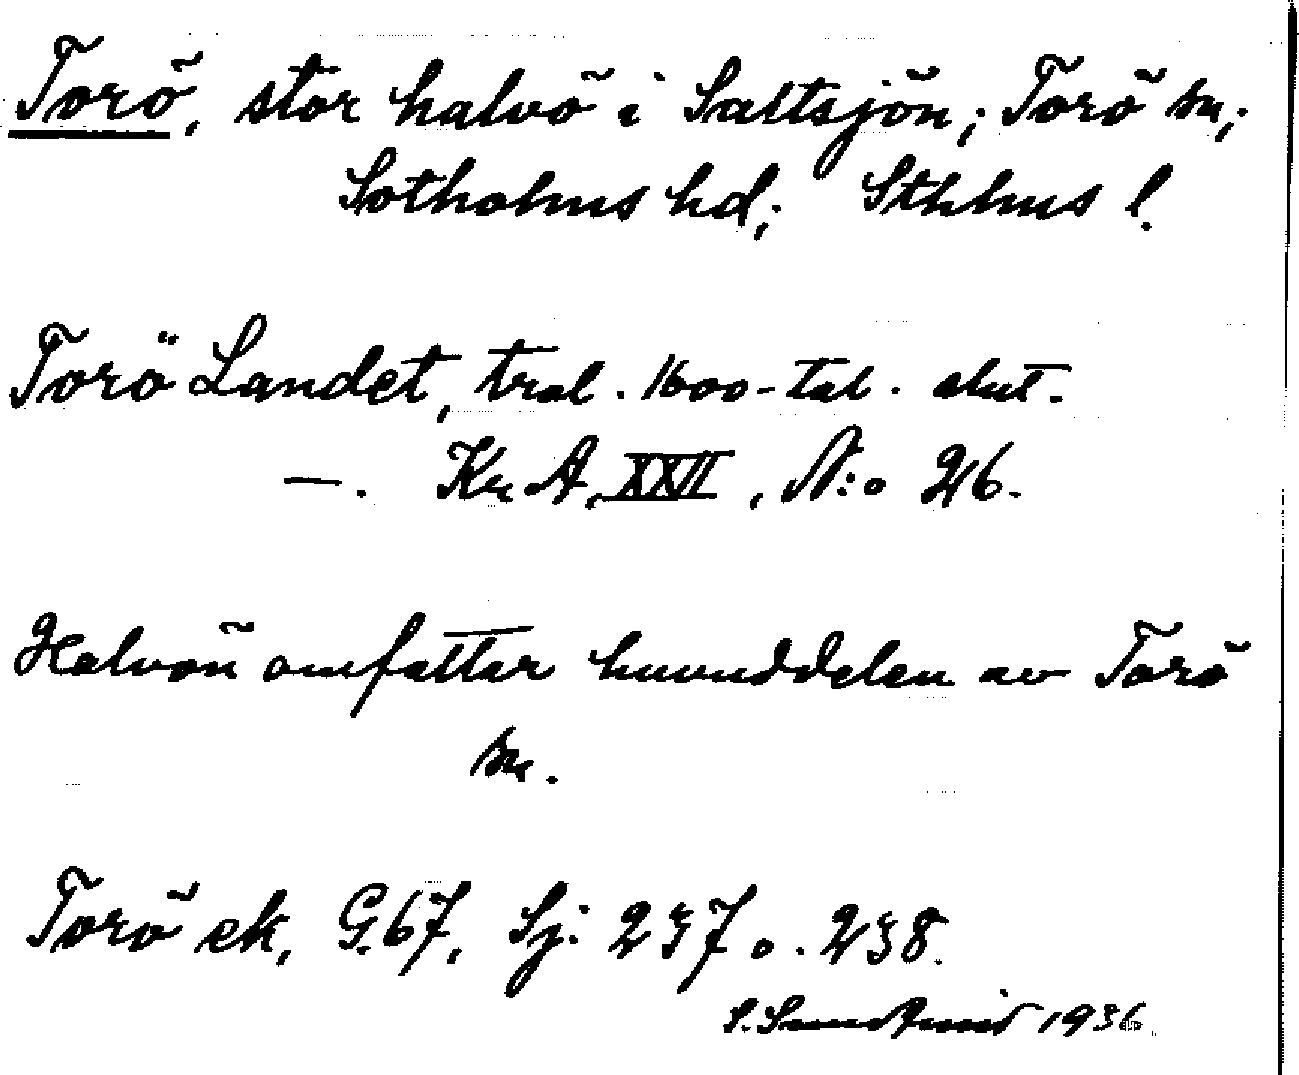 Torö, stor halvö i Saltsjön; Torö sn;
Sotholms hd; Sthlms l.
Torö Landet, tral. 1600-tal. slut.
—. Kr. A. XXII, N:o 26.
Halvön omfattar huvuddelen av Torö
sn.
Torö ek, G. 67, Sj: 237 o. 238.
S. 1936